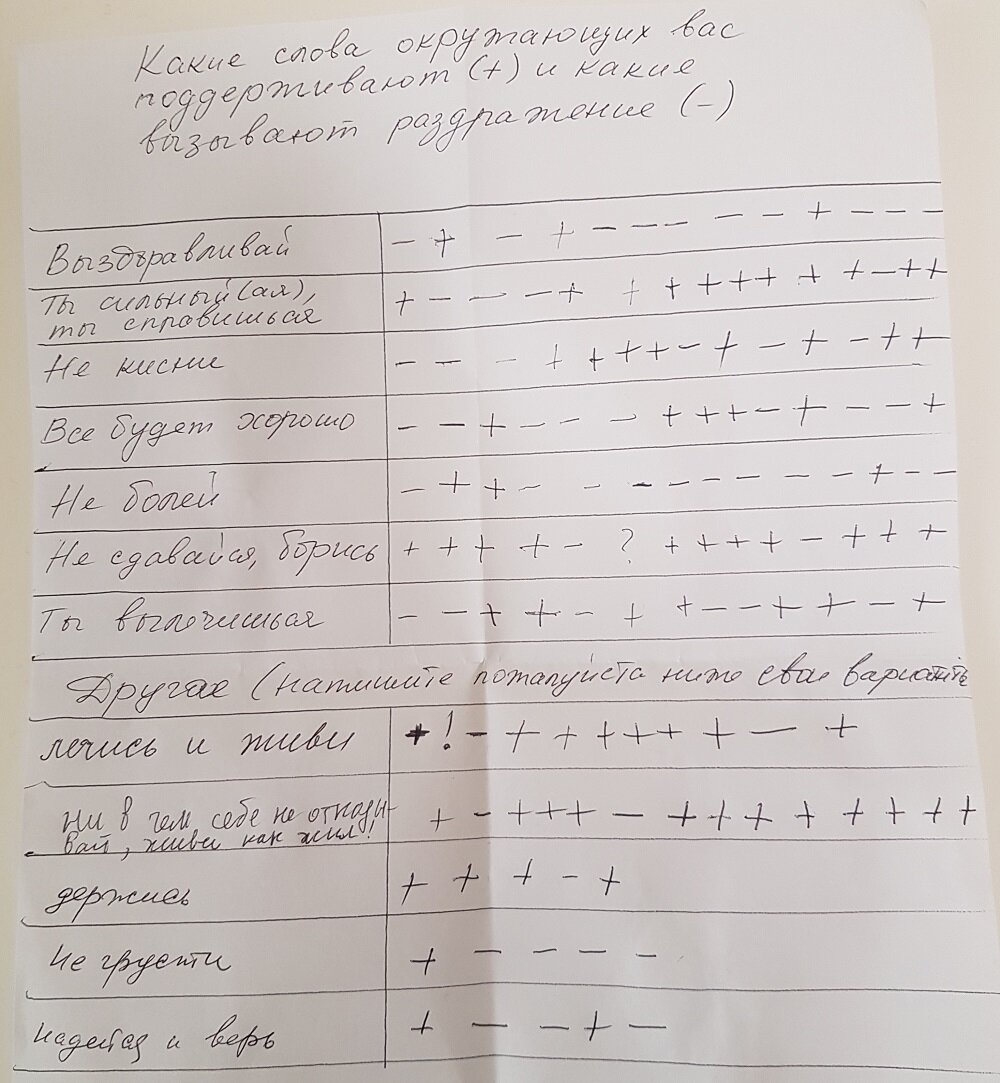 Какие слова окружающих вас
поддерживают (+) и какие
вызывают раздражение (-)
Выздоравливай - + - + - - - - - + - - -
Ты сильный(ая),
ты справишься + - - - + + + + + + + + - + +
Не кисни - - - + + + + - + - + - + +
Все будет хорошо - - + - - - + + + - + - - +
Не болей - + + - - - - - - - - + - -
Не сдавайся, борись + + + + - ? + + + + - + + + +
Ты вылечишься - - + + - + + - - + + - +
Другое (напишите пожалуйста ниже свои варианты
лечись и живи + ! - + + + + + + - +
Ни в чем себе не отказы-
вай, живи как жил! + - + + + - + + + + + + + + +
держись + + + - +
Не грусти + - - - -
надейся и верь + - - + -